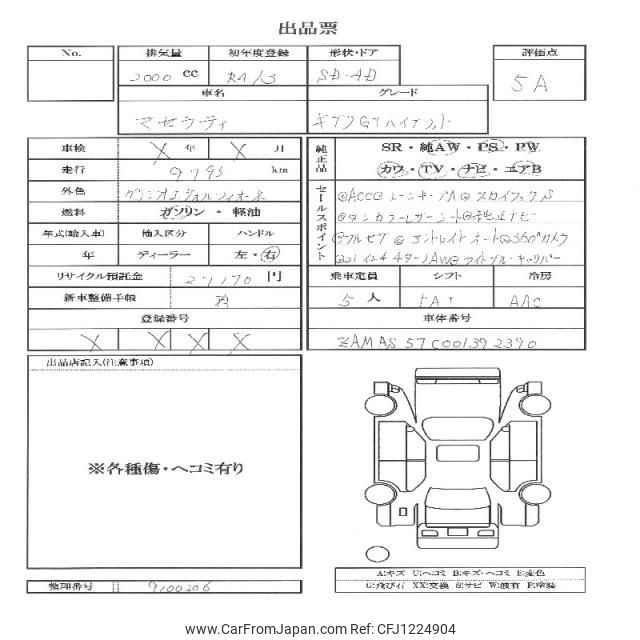 出品票
No. 排気量 初年度登録 形状・ドア 評価点
2000 cc R4/3 SD・4D 5A
車名 グレード
マセラティ ギブリGTハイブリッド
車検 X 年 X 月
走行 9795 km
外色
燃料 ガソリン・軽油
年式(輸入車) 輸入区分 ハンドル
年 ディーラー 左・右
リサイクル預託金 27170 円
新車整備手帳 有
登録番号
X X X X
純正品
SR・純AW・PS・PW
カワ・TV・ナビ・エアB
セールスポイント
@ACC@レーンキープA@スカイフック
@タンカラーレザーシート@純正ナビ
@フルセグ@オート@360°カメラ
乗車定員 シフト 冷房
5 人 FAT AAC
車体番号
ZAMAS57C001392390
出品店記入(注意事項)
※各種傷・ヘコミ有り
A:キズ U:ヘコミ B:キズ・ヘコミ E:変色
G:飛び石 XX:交換 S:サビ W:波有 P:塗装
整理番号 9100206
www.CarFromJapan.com - CFJ1224904